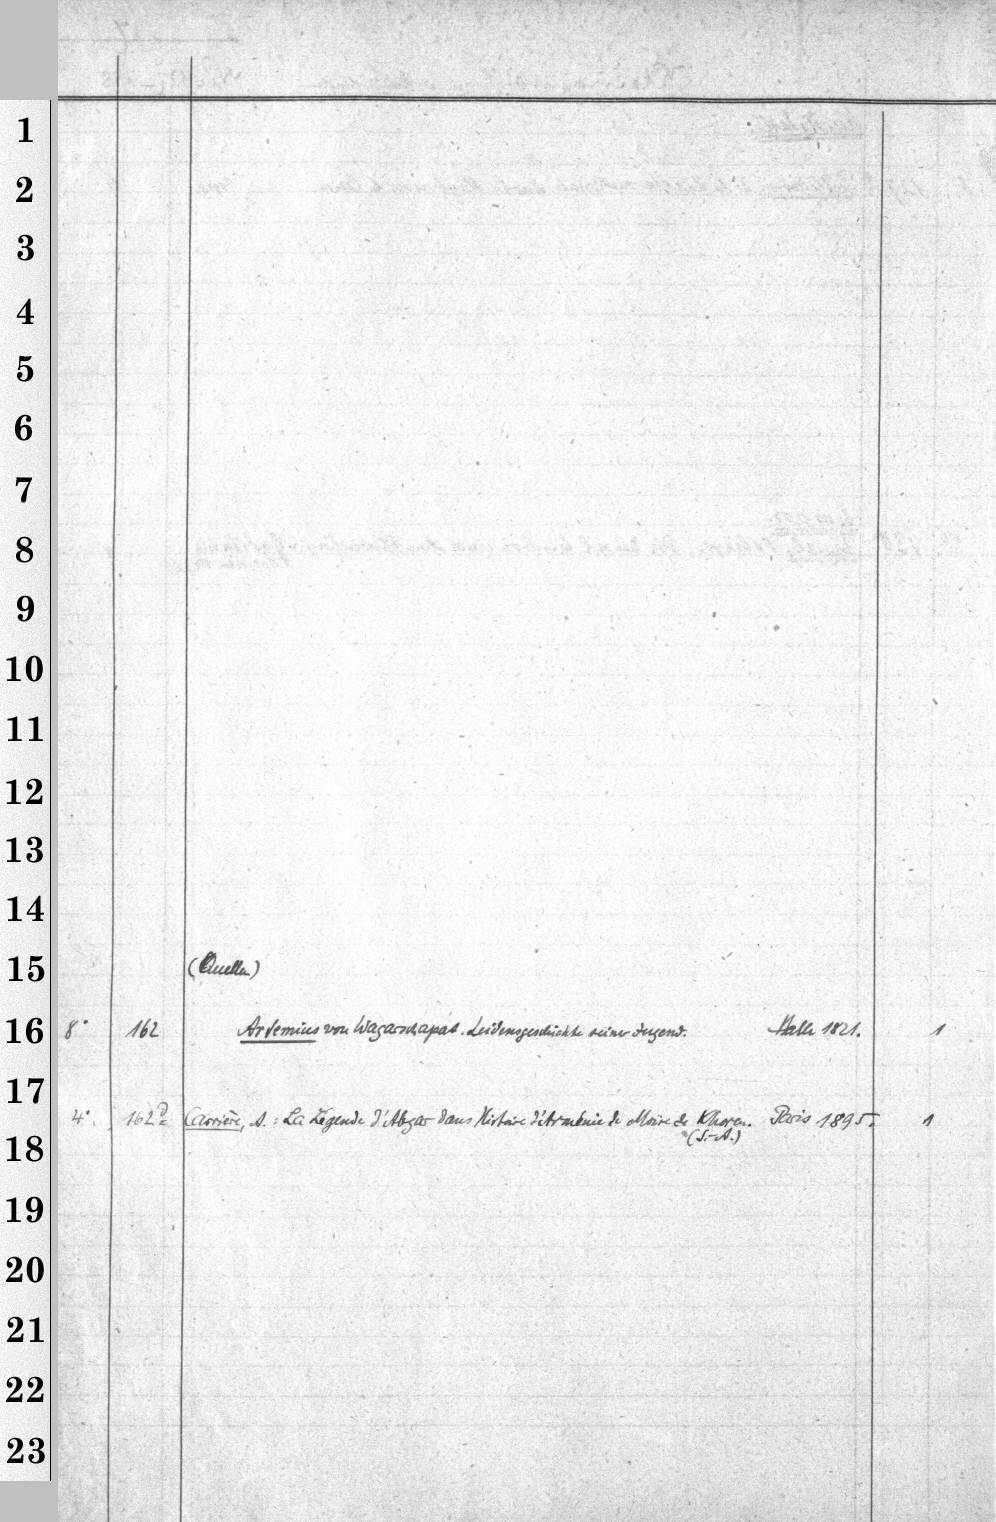 1
2
3
4
5
6
7
8
9
10
11
12
13
14
15 (Quellen)
16 8° 162 Artemius von Wagarschapat. Leidensgeschichte seiner Jugend. Halle 1821. 1
17 4°. 162 Carrière, A.: La Légende d'Abgar dans Histoire d'Arménie de Moïse de Khoren. Paris 1895. 1
18 (S.-A.)
19
20
21
22
23